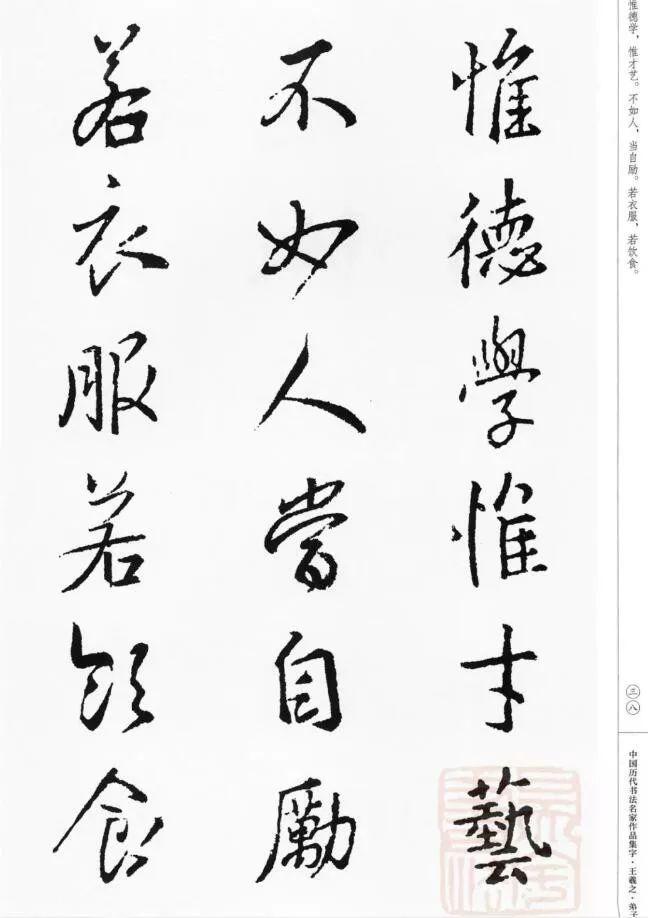 惟德学，惟才艺。不如人，当自励。若衣服，若饮食。
惟德學惟才藝
不如人當自勵
若衣服若飲食
三八
中国历代书法名家作品集字·王羲之·弟子